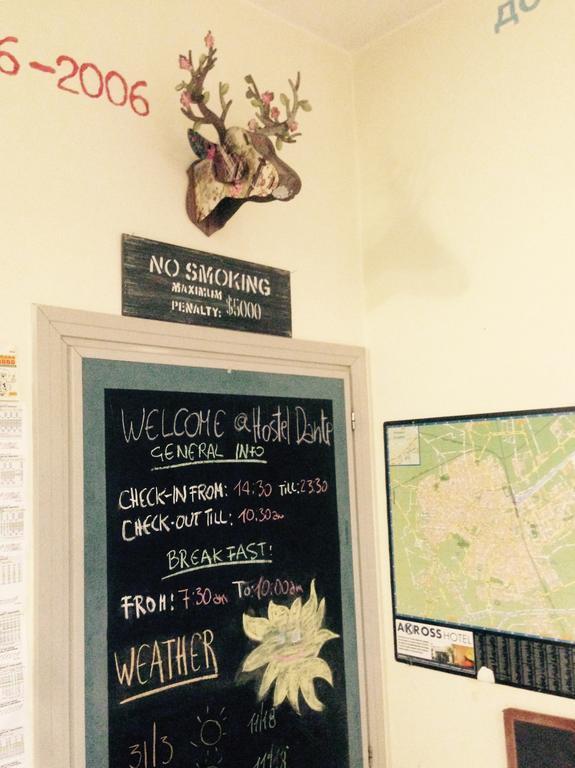 6-2006
до
NO SMOKING
MAXIMUM
PENALTY: $5000
WELCOME @ Hostel Dante
GENERAL INFO
CHECK-IN FROM: 14:30 TILL: 23:30
CHECK-OUT TILL: 10.30am
BREAKFAST!
FROM: 7:30am TO: 10:00am
WEATHER
31/3 11/18
11/18
AKROSS HOTEL